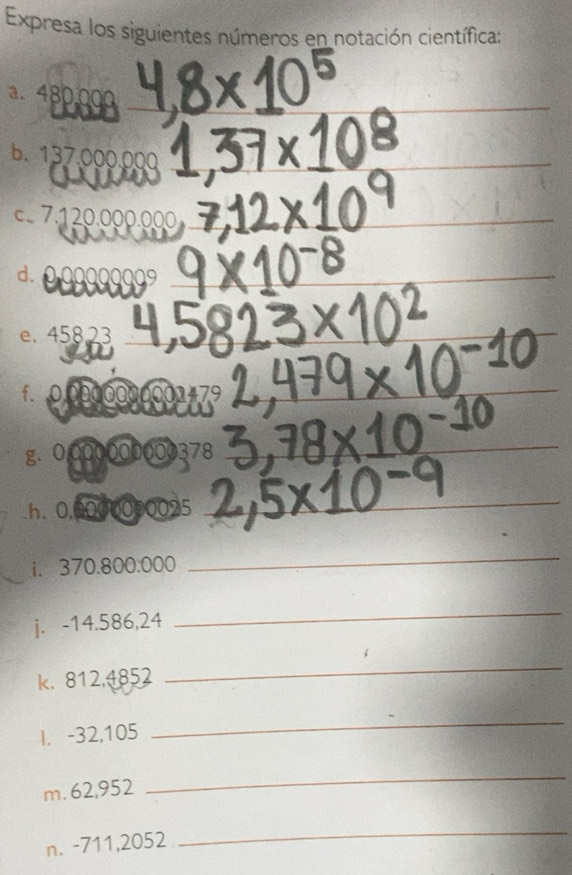 Expresa los siguientes números en notación científica:
a. 480.000 4,8×10⁵
b. 137.000.000 1,37×10⁸
c. 7.120.000.000 7,12×10⁹
d. 0,00000009 9×10⁻⁸
e. 458,23 4,5823×10²
f. 2,479×10⁻¹⁰
g. 3,78×10⁻¹⁰
h. 2,5×10⁻⁹
i. 370.800.000
j. -14.586,24
k. 812,4852
l. -32,105
m. 62,952
n. -711,2052